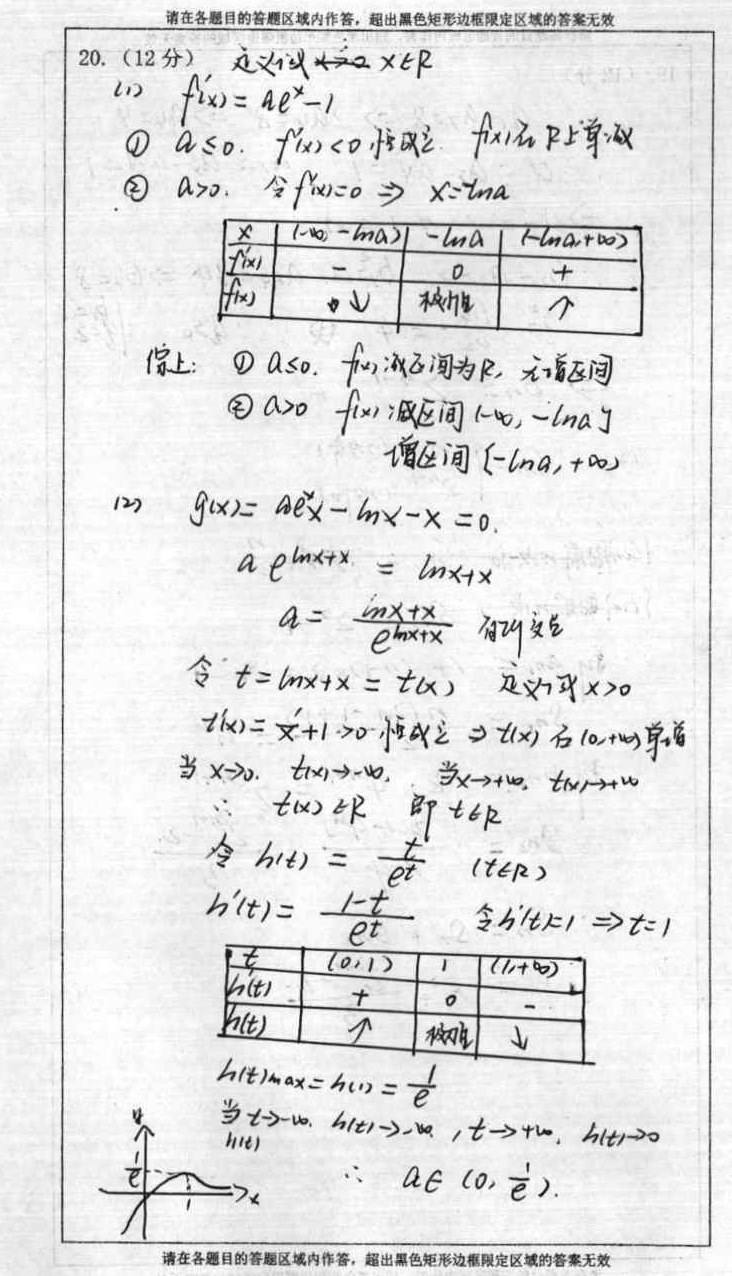 请在各题目的答题区域内作答，超出黑色矩形边框限定区域的答案无效
20.（12分） 定义域 x∈R
(1) f'(x)=ae^x-1
① a≤0. f'(x)<0恒成立. f(x)在R上单减
② a>0. 令f'(x)=0 ⇒ x=-lna
x (-∞,-lna) -lna (-lna,+∞)
f'(x) - 0 +
f(x) ↓ 极小值 ↑
综上: ① a≤0. f(x)减区间为R, 无增区间
② a>0 f(x)减区间(-∞,-lna]
增区间[-lna,+∞)
(2) g(x)=ae^x x-lnx-x=0.
a e^{lnx+x} = lnx+x
a = \frac{lnx+x}{e^{lnx+x}} 有两交点
令 t=lnx+x=t(x) 定义域x>0
t'(x)=\frac{1}{x}+1>0恒成立 ⇒ t(x)在(0,+∞)单增
当x→0. t(x)→-∞. 当x→+∞, t(x)→+∞
∴ t(x)∈R 即t∈R
令 h(t) = \frac{t}{e^t} (t∈R)
h'(t)= \frac{1-t}{e^t} 令h'(t)=1 ⇒t=1
t (0,1) 1 (1,+∞)
h'(t) + 0 -
h(t) ↑ 极大值 ↓
h(t)max=h(1)=\frac{1}{e}
当t→-∞. h(t)→-∞, t→+∞, h(t)→0
h(t)
∴ a∈(0,\frac{1}{e}).
y
\frac{1}{e}
1
x
请在各题目的答题区域内作答，超出黑色矩形边框限定区域的答案无效